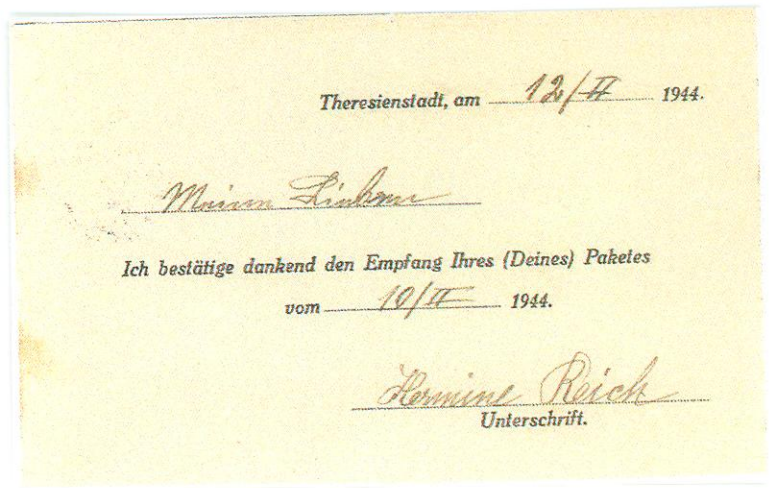 Theresienstadt, am 12/II 1944.
Meinen Lieben
Ich bestätige dankend den Empfang Ihres (Deines) Paketes
vom 10/II 1944.
Hermine Reich
Unterschrift.